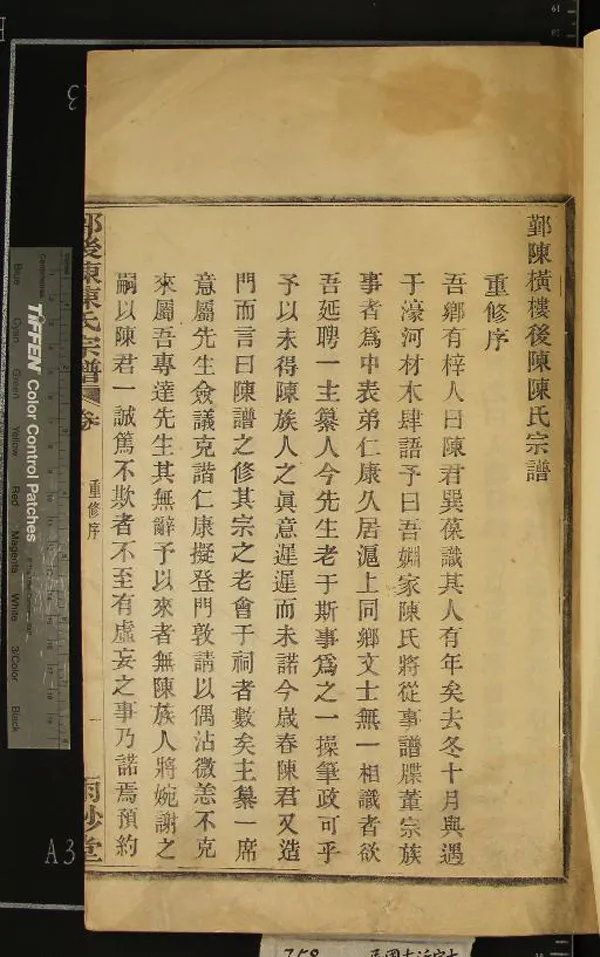 鄞陳橫樓後陳陳氏宗譜
重修序
吾鄉有梓人曰陳君巽葆識其人有年矣去冬十月與遇
于濠河材木肆語予曰吾姻家陳氏將從事譜牒董宗族
事者爲中表弟仁康久居滬上同鄉文士無一相識者欲
吾延聘一主纂人今先生老于斯事爲之一操筆政可乎
予以未得陳族人之眞意遲遲而未諾今歲春陳君又造
門而言曰陳譜之修其宗之老會于祠者數矣主纂一席
意屬先生僉議克諧仁康擬登門敦請以偶沾微恙不克
來屬吾專達先生其無辭予以來者無陳族人將婉謝之
嗣以陳君一誠篤不欺者不至有虛妄之事乃諾焉預約
後陳陳氏宗譜
卷
重修序
一
堂
TIFFEN Color Control Patches
Blue
Cyan
Green
Yellow
Red
Magenta
White
3/Color
Black
A3